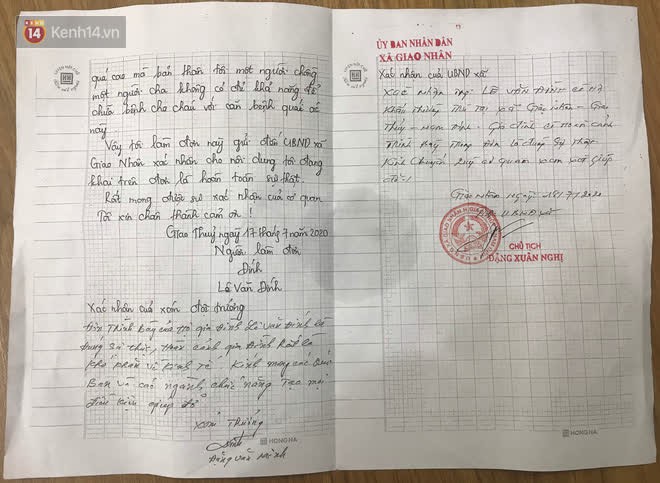 Kenh14.vn
quá cao mà bản thân tôi một người chồng
một người cha không có đủ khả năng để
chữa bệnh cho cháu với căn bệnh quái ác
này.
Vậy tôi làm đơn này gửi đến UBND xã
Giao Nhân xác nhận cho nội dung tôi đang
khai trên đơn là hoàn toàn sự thật.
Rất mong được sự xác nhận của cơ quan
Tôi xin chân thành cảm ơn !
Giao Thuỷ ngày 17 tháng 7 năm 2020
Người làm đơn
Đính
Lê Văn Đính
Xác nhận của xóm đội trưởng
Đơn Trình Bày của Hộ gia Đình Lê Văn Đính là
Đúng sự thực, Hoàn cảnh gia Đình Rất là
khó khăn về kinh tế. Kính mong các
Ban và các ngành chức năng Tạo mọi
điều kiện giúp đỡ
Xóm Trưởng
HONGHA
ỦY BAN NHÂN DÂN
XÃ GIAO NHÂN
Xác nhận của UBND xã
Xác nhận ông: Lê Văn Đính có Hộ
khẩu thường trú tại xã Giao Nhân - Giao
Thủy - Nam Định. Gia đình có hoàn cảnh
Trình Bày Trong Đơn là đúng sự thật
Kính chuyển Quý cơ quan xem xét giúp
đỡ.!
Giao Nhân ngày 18/7/2020
UBND xã
CHỦ TỊCH
ĐẶNG XUÂN NGHỊ
HONGHA